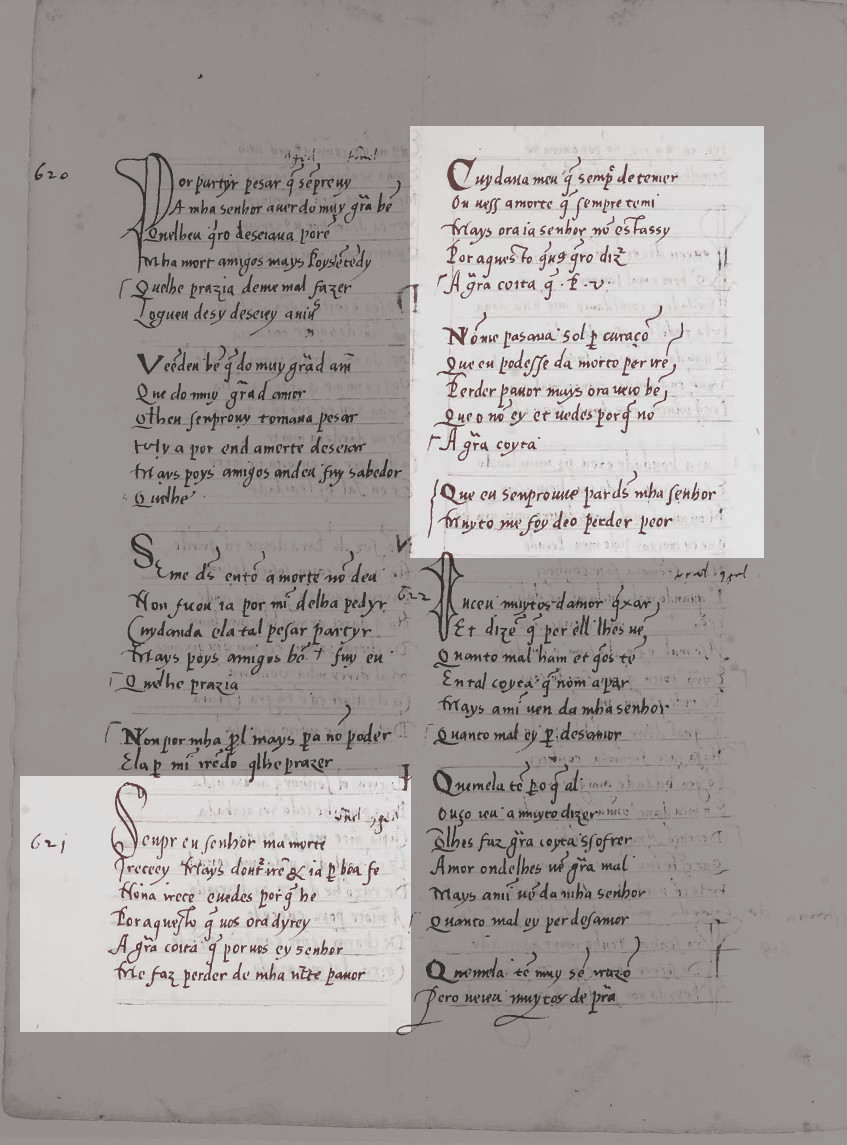 620
Por partyr pesar q̃ sẽpre uy
A mha senhor auer do muy grã bẽ
Quelheu q̃ro deseiaua porẽ
Mha mort amigos mays
Quelhe prazia deme mal fazer
Logueu desy deseiey
Veẽdeu bẽ q̃ do muy grãd
Que do muy grãd amor
senprouuy tomaua pesar
a por end amorte deseiar
Mays poys amigos andeu fuy sabedor
Quelhe
Seme ds̃ entõ a morte nõ deu
Non ficou ia por mĩ delha pedyr
Cuydando ela tal pesar partyr
Mays poys amigos bẽ fuy eu
Quelhe prazia
Non por mha prol mays pa nõ poder
Ela p̱ mĩ qlhe prazer
621
Senpr eu senhor mamorte
Receey Mays ia p̱ bõa fe
Nona crece euedes porq̃ he
Por aquesto q̃ uos ora dyrey
A grã coita q̃ poruos ey senhor
Me faz perder de mha pauor
Cuydaua meu q̃ semp̃ de temer
Ou uess amorte q̃ sempre temi
Mays ora ia senhor nõ est assy
Por aquesto q̃ro diz̃
A grã coita q̃ . P . v .
Nõme pasaua sol p̱ curaçõ
Que eu podesse da morte per rrẽ
Perder pauor mays ora ueio bẽ
Que o nõ ey et uedes porq̃ nõ
A grã coyta
Que eu senprouue par ds̃ mha senhor
Muyto me foy deo perder peor
622
muytos damor q̃xar
Et dizẽ q̃ per ell lhes uẽ
Quanto mal ham et q̃os tẽ
En tal coyta q̃ nom a par
Mays amĩ uen da mha senhor
Quanto mal ey p̱ desamor
Quemela tẽ po q̃ al
Ouço ueu a muyto dizer
Q̃lhes faz grã coyta ssofrer
Amor ondelhes uẽ grã mal
Mays amĩ uẽ da mha senhor
Quanto mal ey per desamor
Quemela tẽ muy sẽ rrazõ
Pero ueieu muytos de prã